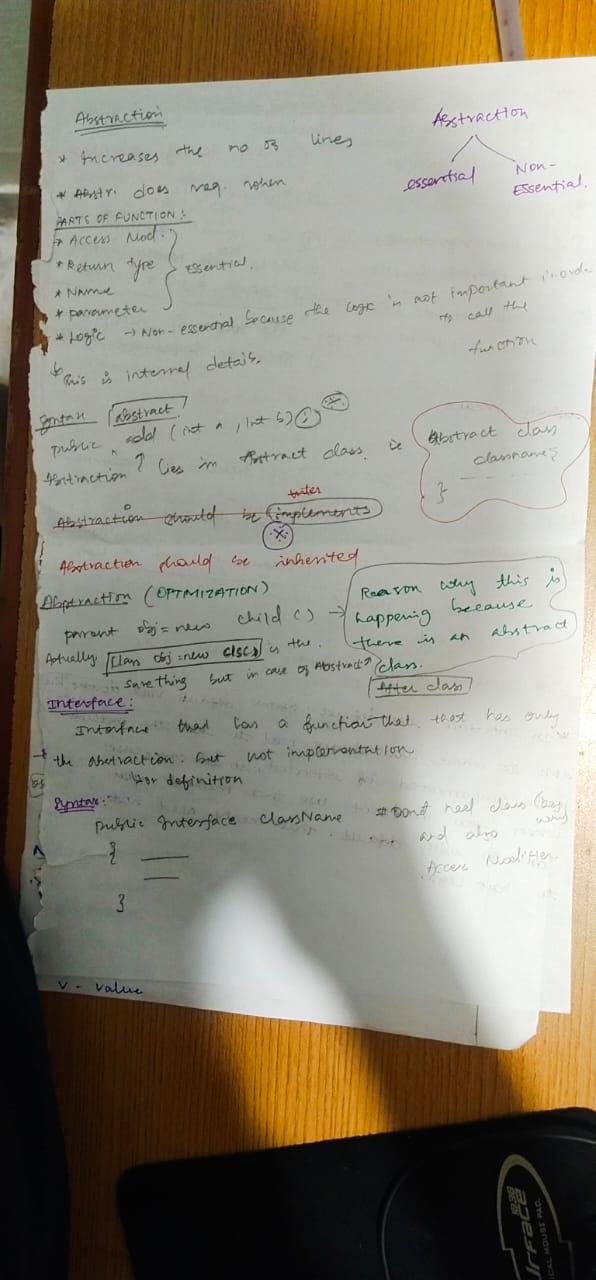 Abstraction
* Increases the no of lines
* Abstr. does req. when
Abstraction
essential
Non-
Essential.
PARTS OF FUNCTION:
* Access Mod.
* Return type
* Name
* parameter
Essential.
* Logic → Non-essential because the logic is not important inorder
to call the
function
This is internal details.
Syntax abstract
public add (int a, int b);
Abstraction lies in Abstract class. ie
Abstract class
classname{
}
Abstraction should be implements
Abstraction should be inherited
Abstraction (OPTIMIZATION)
parent obj = new child () →
Reason why this is
happening because
there is an abstract
class.
Actually class obj = new clsc() is the
same thing but in case of Abstract
After class
Interface:
Interface that has a function that that has only
the abstraction. but not implementation
or definition
Syntax:
public Interface className
{
}
# Don't need class (key
word)
and also
Access Modifier.
V - Value
urface
CAL MOUSE PAD.